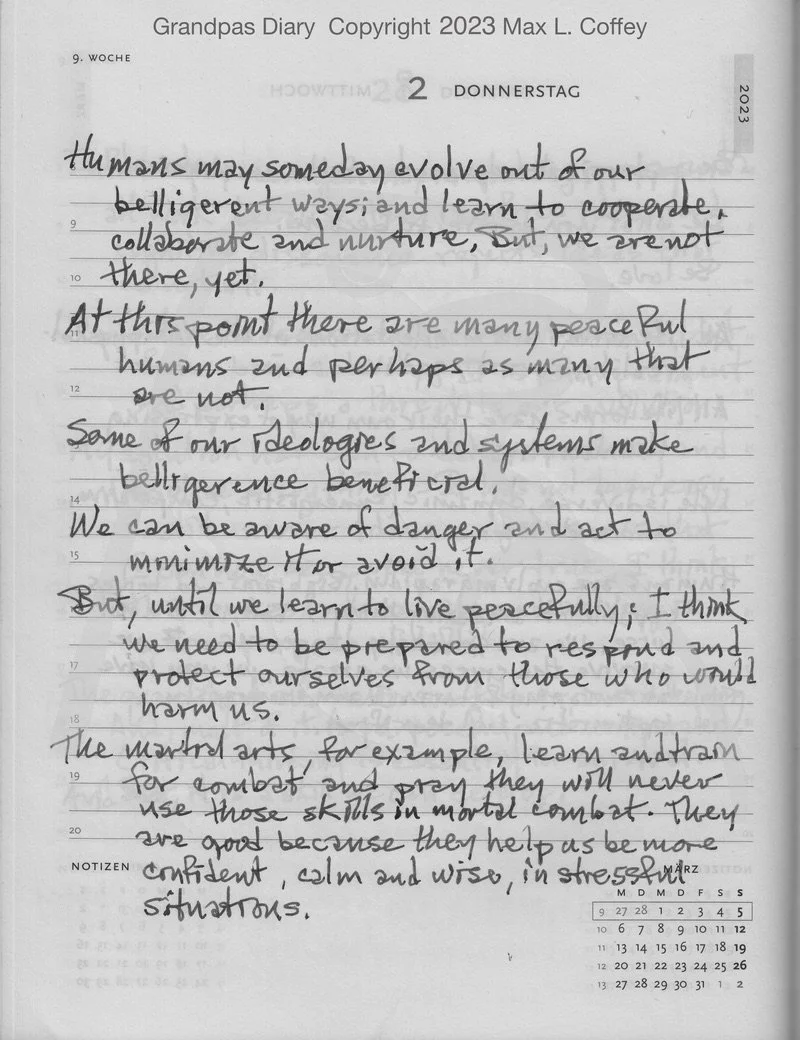 Grandpas Diary Copyright 2023 Max L. Coffey
9. WOCHE
2 DONNERSTAG
2023
Humans may someday evolve out of our
belligerent ways; and learn to cooperate,
9
collaborate and nurture, But, we are not
10 there, yet.
At this point there are many peaceful
11
humans and perhaps as many that
12
are not.
Some of our ideologies and systems make
belligerence beneficial.
14
We can be aware of danger and act to
15
minimize it or avoid it.
But, until we learn to live peacefully; I think
we need to be prepared to respond and
17
protect ourselves from those who would
harm us.
18
The martial arts, for example, learn and train
19
for combat and pray they will never
use those skills in mortal combat. They
20
are good because they help us be more
NOTIZEN
confident, calm and wise, in stressful
MÄRZ
situations.
M D M D F S S
9 27 28 1 2 3 4 5
10 6 7 8 9 10 11 12
11 13 14 15 16 17 18 19
12 20 21 22 23 24 25 26
13 27 28 29 30 31 1 2